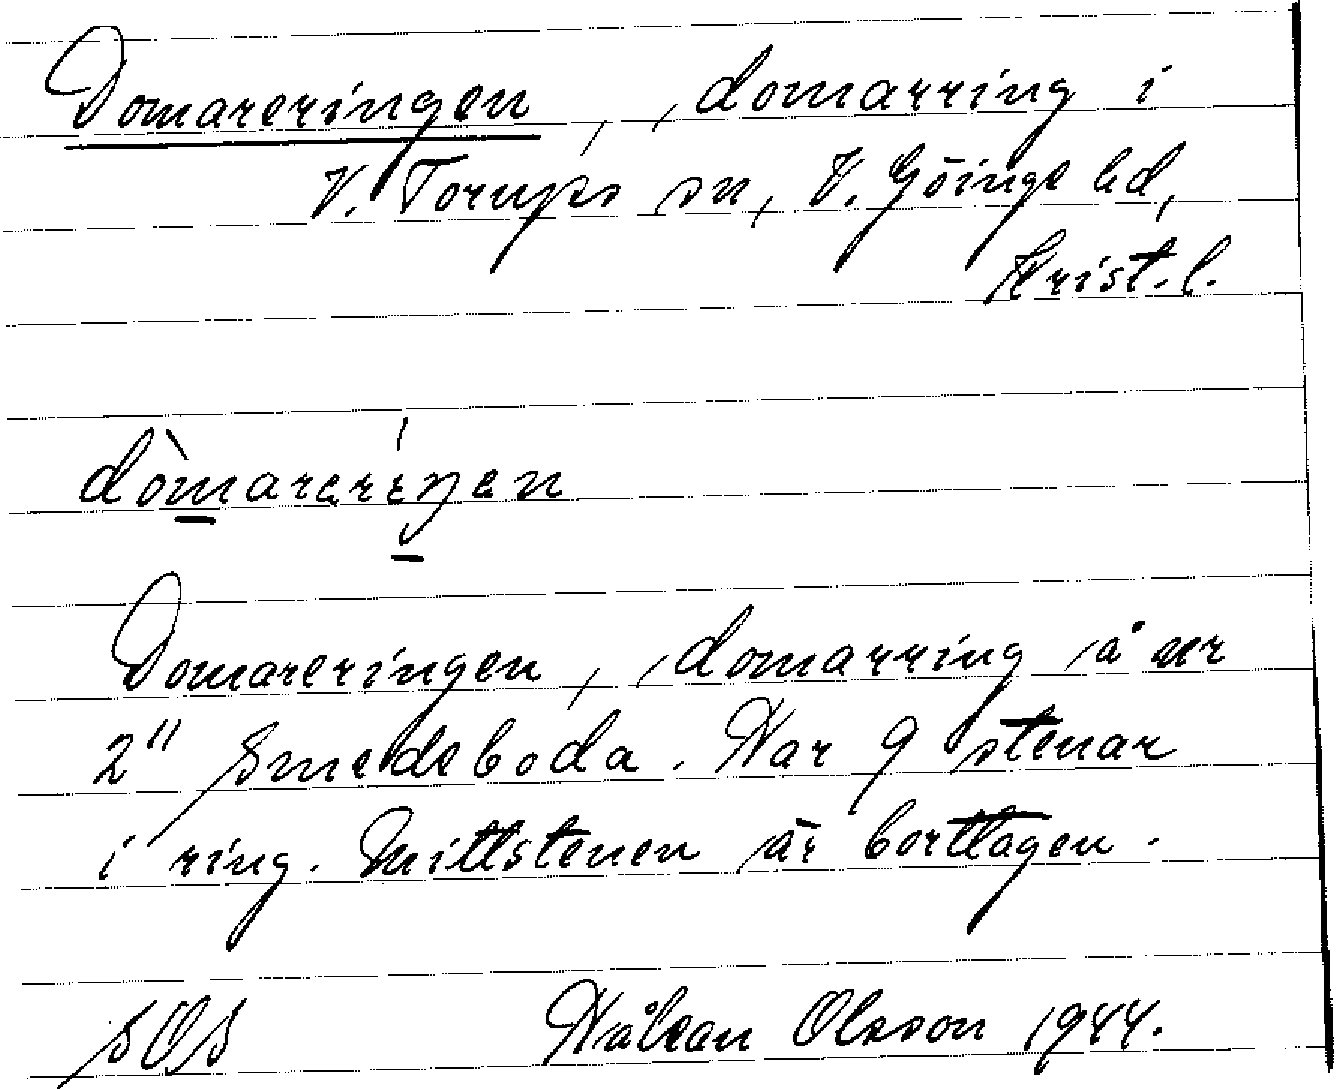 Domareringen, domarring i
V. Torups sn, V. Göinge hd,
Krist. l.
dòmarerıŋen
Domareringen, domarring å nr
2" Smedeboda. Har 9 stenar
i ring. Mittstenen är borttagen.
SOS Håkan Olsson 1944.